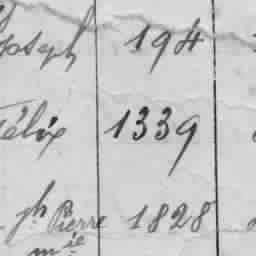 Joseph 194
Félix 1339
Jph Pierre 1828
mie